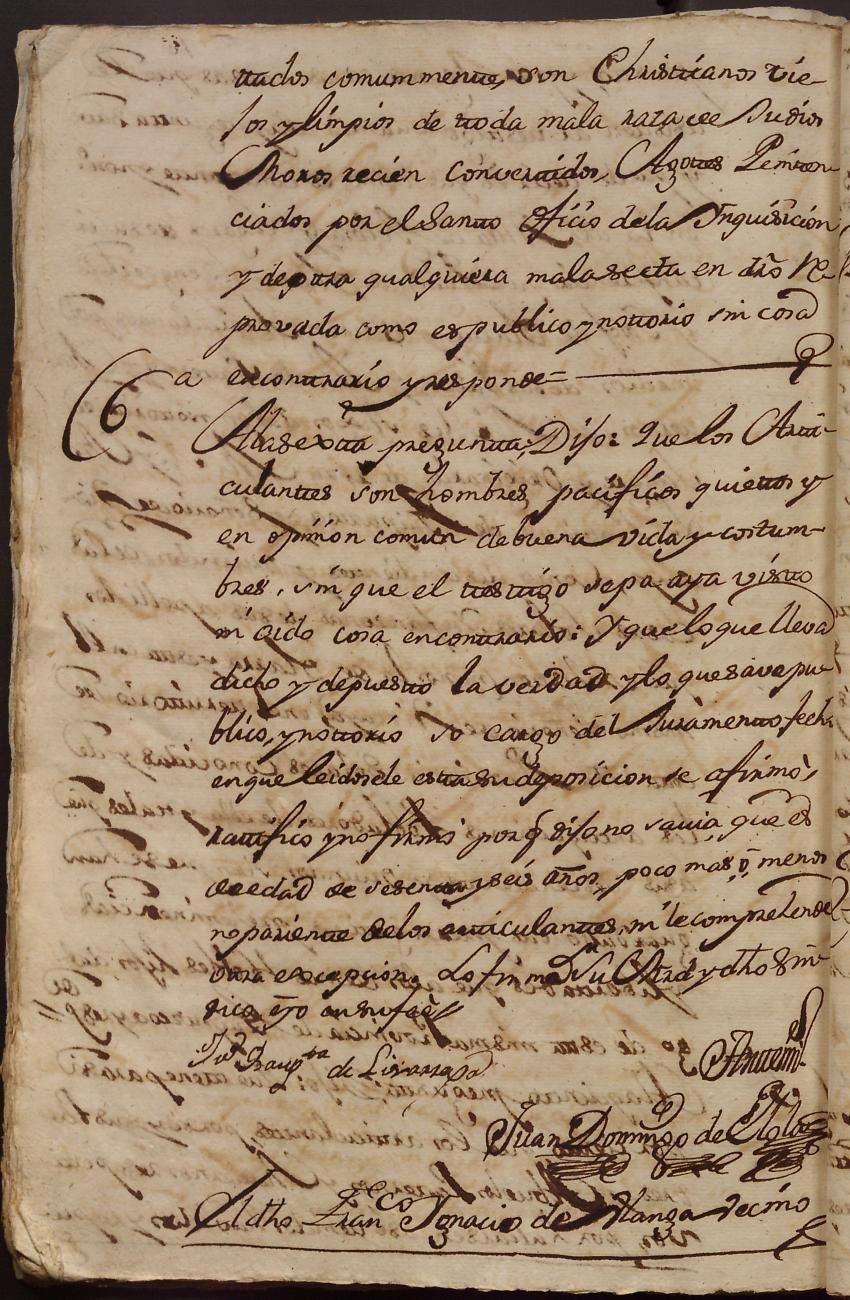 ttados comummente, son Christianos vie-
jos y limpios de ttoda mala raza de Judios
Moros recien converttidos, Agotes Peniten-
ciados por el Santto Oficio de la Inquisicion,
y de ottra qualquiera mala sectta en dro Re-
provada como es publico y nottorio sin cosa
en conttrario y responde=
6a
A la sextta pregunta, Dijo: Que los Artti-
culanttes son hombres pacificos quiettos y
en opinion comun de buena vida y costum-
bres, sin que el testtigo sepa aya vistto
ni oido cosa en conttrario: Y que lo que lleva
dicho y depuestto la verdad y lo que save pu-
blico, y nottorio so cargo del Juramentto fecho
en que leidosele estta su deposicion se afirmò,
rattificò y no firmò por q dijo no savia, que es
de edad de sesentta y seis años, poco màs ò menos
no pariente de los articulanttes, ni le comprehende
ottra excepcion, Lo firmò Su Mrd y dho Sin-
dico, è yo en su fee
Ju Baupta de Lizarzza
Antemi
Juan Domingo de
Al dho Franco Ignacio de Alanga vecino